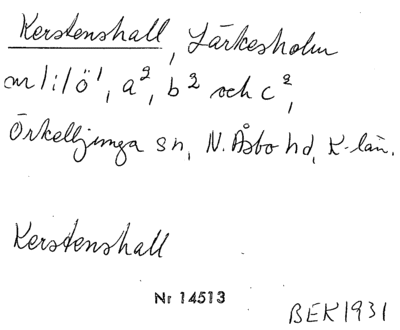 Kerstenshall, Lärkesholm
m/i/ö¹, a², b² och c²,
Örkelljunga sn, N. Åsbo hd, K-län.
Kerstenshall
Nr 14513
BEK 1931